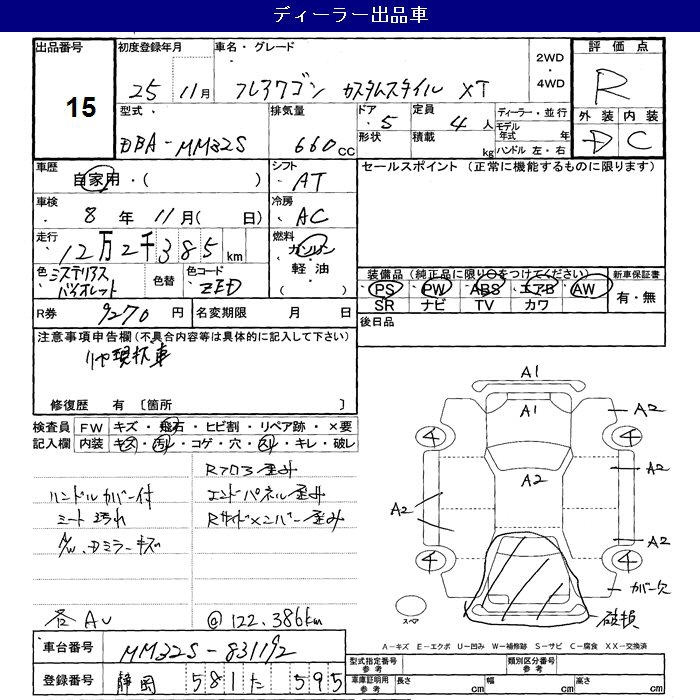 ディーラー出品車
出品番号 15
初度登録年月 25 11月
車名・グレード フレアワゴン カスタムスタイル XT
2WD・4WD
評価点 R
外装 D 内装 C
型式 DBA-MM32S
排気量 660cc
ドア形状 5
定員 4人 積載 kg
ディーラー・並行
モデル年式 年
ハンドル 左・右
車歴 自家用・( )
シフト AT
セールスポイント (正常に機能するものに限ります)
車検 8年11月( 日)
冷房 AC
走行 12万2千385km
燃料 ガソリン・軽油
色 ミステリアスバイオレット
色替
色コード ZED
装備品 (純正品に限り○をつけてください)
PS PW ABS エアB AW
SR ナビ TV カワ
新車保証書 有・無
R券 9270円
名変期限 月 日
後日品
注意事項申告欄 (不具合内容等は具体的に記入して下さい)
リヤ現状車
修復歴 有 [箇所 ]
検査員記入欄
FW キズ・飛石・ヒビ割・リペア跡・×要
内装 キズ・汚レ・コゲ・穴・スレ・キレ・破レ
Rフロア歪み
ハンドルカバー付
エンドパネル歪み
シート汚れ
Rサイドメンバー歪み
A/W、Dミラーキズ
各AU
@122,386km
A1
A1
A2
4
4
A2
A2
A2
A2
4
4
カバー欠
破損
スペア
A-キズ E-エクボ U-凹み W-補修跡 S-サビ C-腐食 XX-交換済
車台番号 MM32S-831192
型式指定番号 参考
類別区分番号 参考
登録番号 静岡 581 た 595
車庫証明用 参考 長さ cm 幅 cm 高さ cm